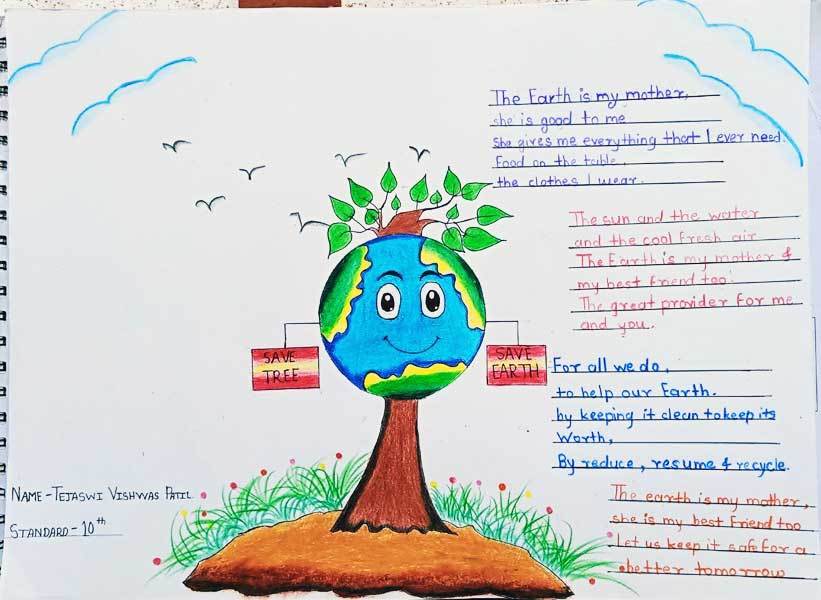 The Earth is my mother,
she is good to me
She gives me everything that I ever need.
Food on the table,
the clothes I wear.
The sun and the water
and the cool fresh air
The Earth is my mother &
my best friend too!
The great provider for me
and you.
SAVE
TREE
SAVE
EARTH
For all we do,
to help our Earth.
by keeping it clean to keep its
Worth,
By reduce, resume & recycle.
NAME - TEJASWI VISHWAS PATIL
STANDARD - 10th
The earth is my mother,
she is my best friend too
Let us keep it safe for a
better tomorrow